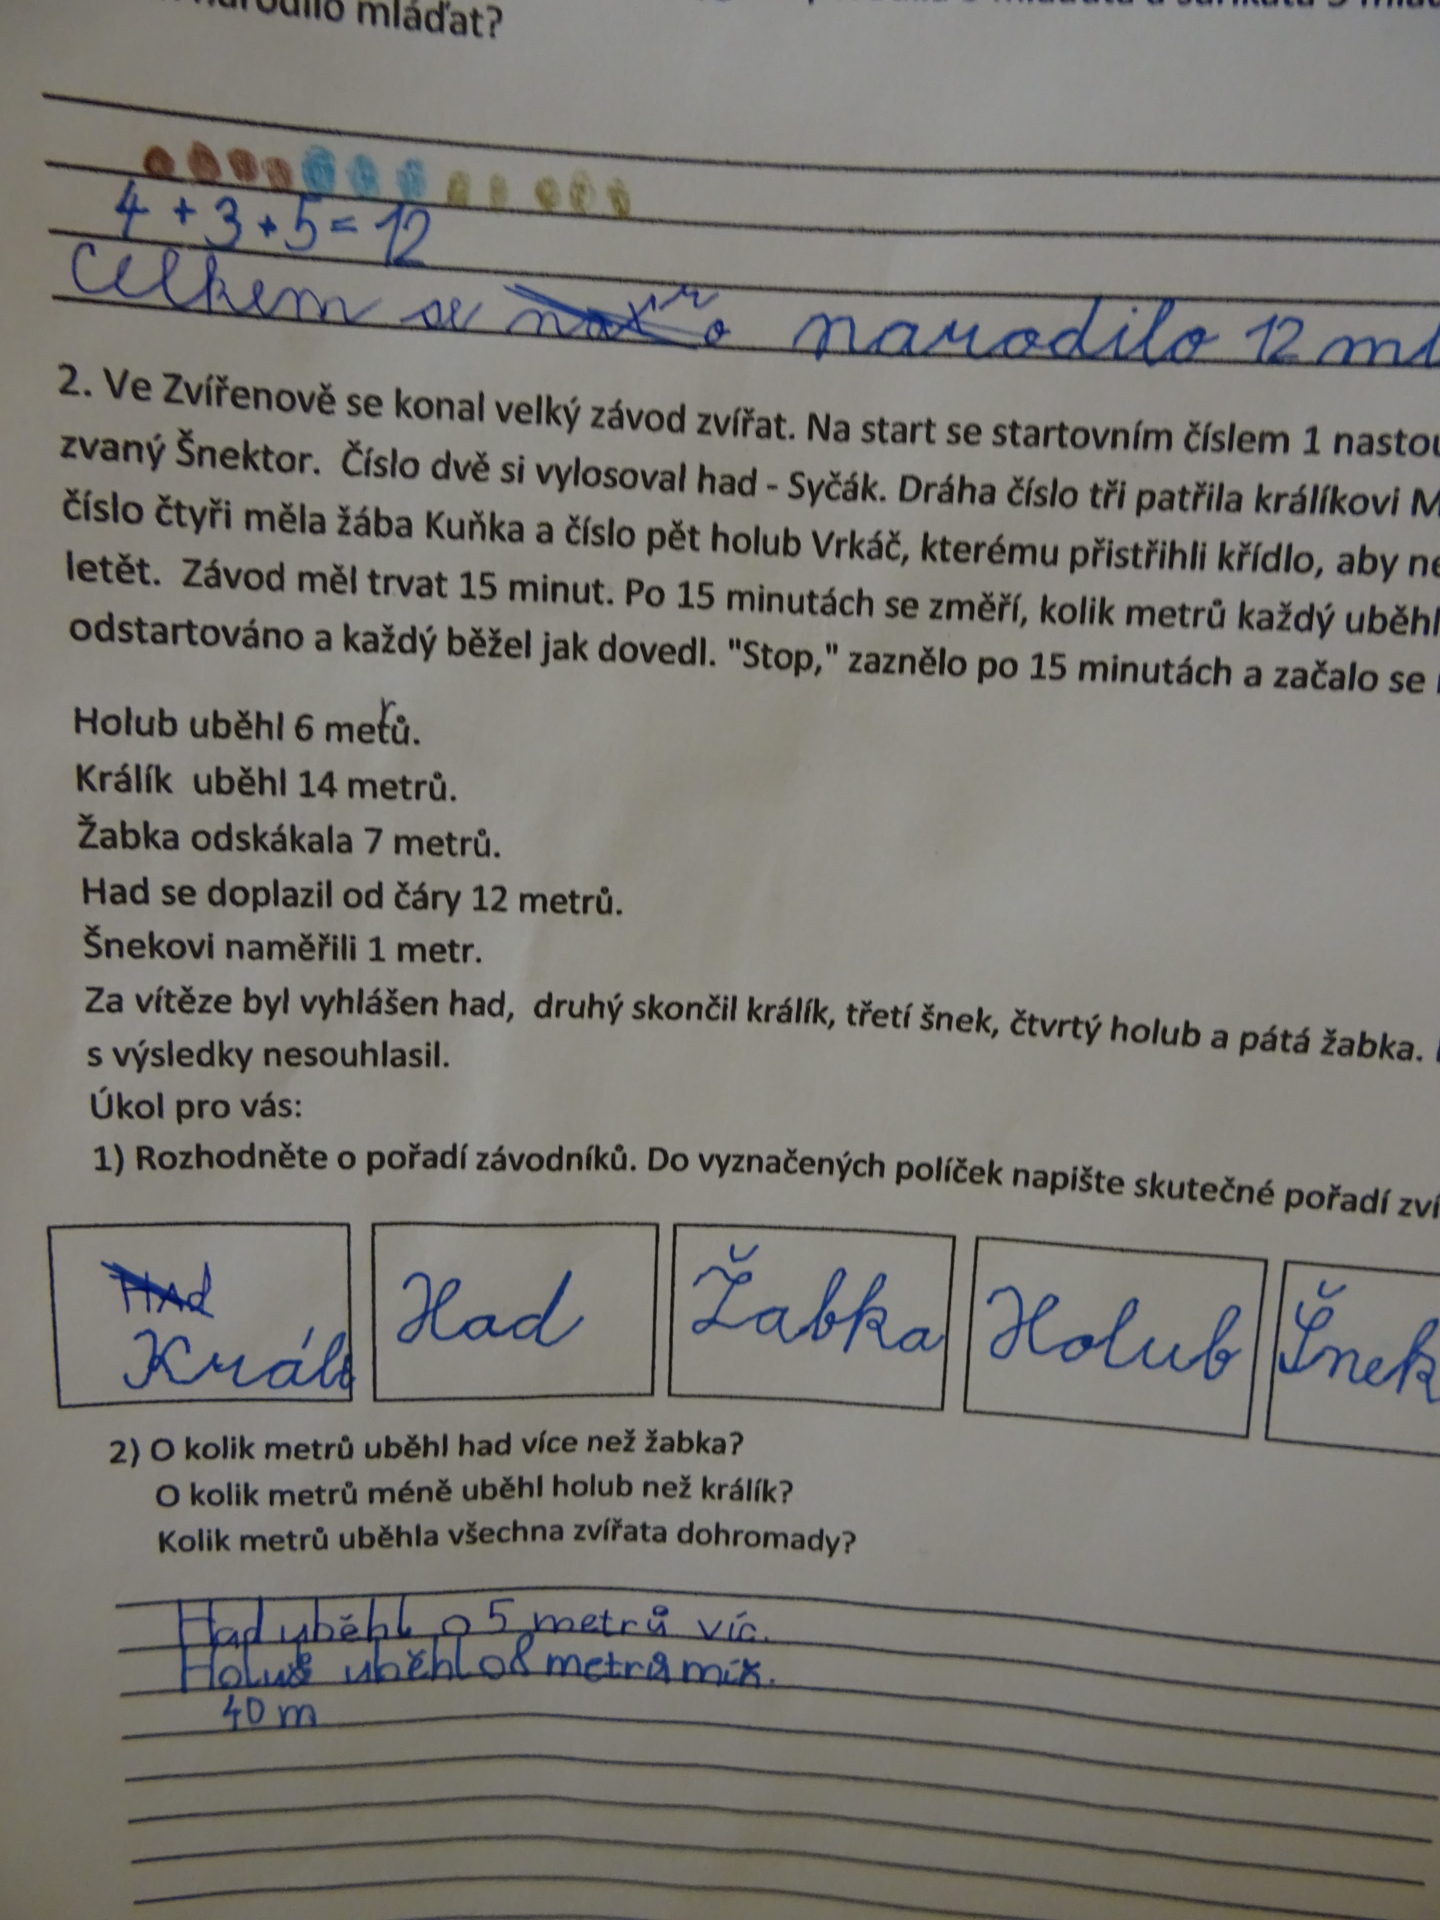 narodilo mláďat?
4 + 3 + 5 = 12
Celkem se narodilo 12 ml
2. Ve Zvířenově se konal velký závod zvířat. Na start se startovním číslem 1 nastou
zvaný Šnektor. Číslo dvě si vylosoval had - Syčák. Dráha číslo tři patřila králíkovi M
číslo čtyři měla žába Kuňka a číslo pět holub Vrkáč, kterému přistřihli křídlo, aby ne
letět. Závod měl trvat 15 minut. Po 15 minutách se změří, kolik metrů každý uběhl
odstartováno a každý běžel jak dovedl. "Stop," zaznělo po 15 minutách a začalo se
Holub uběhl 6 metrů.
Králík uběhl 14 metrů.
Žabka odskákala 7 metrů.
Had se doplazil od čáry 12 metrů.
Šnekovi naměřili 1 metr.
Za vítěze byl vyhlášen had, druhý skončil králík, třetí šnek, čtvrtý holub a pátá žabka.
s výsledky nesouhlasil.
Úkol pro vás:
1) Rozhodněte o pořadí závodníků. Do vyznačených políček napište skutečné pořadí zví
Had
Králi Had Žabka Holub Šnek
2) O kolik metrů uběhl had více než žabka?
O kolik metrů méně uběhl holub než králík?
Kolik metrů uběhla všechna zvířata dohromady?
Had uběhl o 5 metrů víc.
Holub uběhl o 8 metrů
40 m